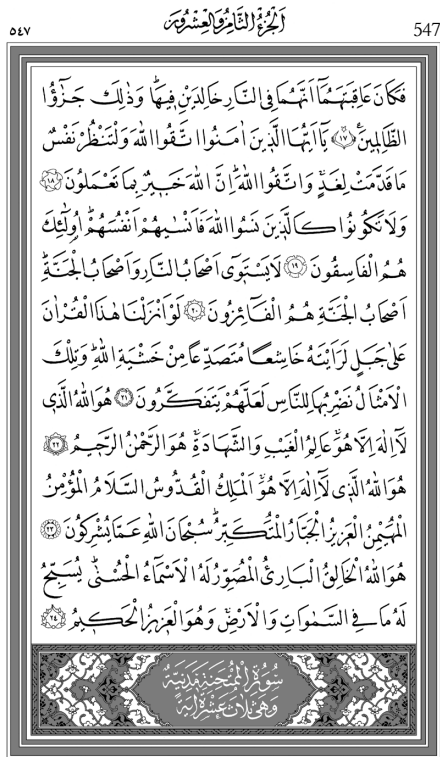 ٥٤٧ اَلْجُزْءُ الثَّامِنُ وَالْعِشْرُونَ 547
فَكَانَ عَاقِبَتَهُمَٓا اَنَّهُمَا فِي النَّارِ خَالِدَيْنِ ف۪يهَاۜ وَذٰلِكَ جَزٰٓؤُا
الظَّالِم۪ينَ۟ ﴿١٧﴾ يَٓا اَيُّهَا الَّذ۪ينَ اٰمَنُوا اتَّقُوا اللّٰهَ وَلْتَنْظُرْ نَفْسٌ
مَا قَدَّمَتْ لِغَدٍۚ وَاتَّقُوا اللّٰهَۜ اِنَّ اللّٰهَ خَب۪يرٌ بِمَا تَعْمَلُونَ ﴿١٨﴾
وَلَا تَكُونُوا كَالَّذ۪ينَ نَسُوا اللّٰهَ فَاَنْسٰيهُمْ اَنْفُسَهُمْۜ اُو۬لٰٓئِكَ
هُمُ الْفَاسِقُونَ ﴿١٩﴾ لَا يَسْتَو۪ٓي اَصْحَابُ النَّارِ وَاَصْحَابُ الْجَنَّةِۜ
اَصْحَابُ الْجَنَّةِ هُمُ الْفَٓائِزُونَ ﴿٢٠﴾ لَوْ اَنْزَلْنَا هٰذَا الْقُرْاٰنَ
عَلٰى جَبَلٍ لَرَاَيْتَهُ خَاشِعاً مُتَصَدِّعاً مِنْ خَشْيَةِ اللّٰهِۜ وَتِلْكَ
الْاَمْثَالُ نَضْرِبُهَا لِلنَّاسِ لَعَلَّهُمْ يَتَفَكَّرُونَ ﴿٢١﴾ هُوَ اللّٰهُ الَّذ۪ي
لَٓا اِلٰهَ اِلَّا هُوَۚ عَالِمُ الْغَيْبِ وَالشَّهَادَةِۚ هُوَ الرَّحْمٰنُ الرَّح۪يمُ ﴿٢٢﴾
هُوَ اللّٰهُ الَّذ۪ي لَٓا اِلٰهَ اِلَّا هُوَۚ اَلْمَلِكُ الْقُدُّوسُ السَّلَامُ الْمُؤْمِنُ
الْمُهَيْمِنُ الْعَز۪يزُ الْجَبَّارُ الْمُتَكَبِّرُۜ سُبْحَانَ اللّٰهِ عَمَّا يُشْرِكُونَ ﴿٢٣﴾
هُوَ اللّٰهُ الْخَالِقُ الْبَارِئُ الْمُصَوِّرُ لَهُ الْاَسْمَٓاءُ الْحُسْنٰىۜ يُسَبِّحُ
لَهُ مَا فِي السَّمٰوَاتِ وَالْاَرْضِۚ وَهُوَ الْعَز۪يزُ الْحَك۪يمُ ﴿٢٤﴾
سُورَةُ الْمُمْتَحِنَةِ مَدَنِيَّةٌ
وَهِيَ ثَلَاثَ عَشْرَةَ اٰيَةً